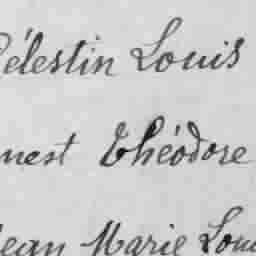 Célestin Louis
nest Théodore
Jean Marie Lou